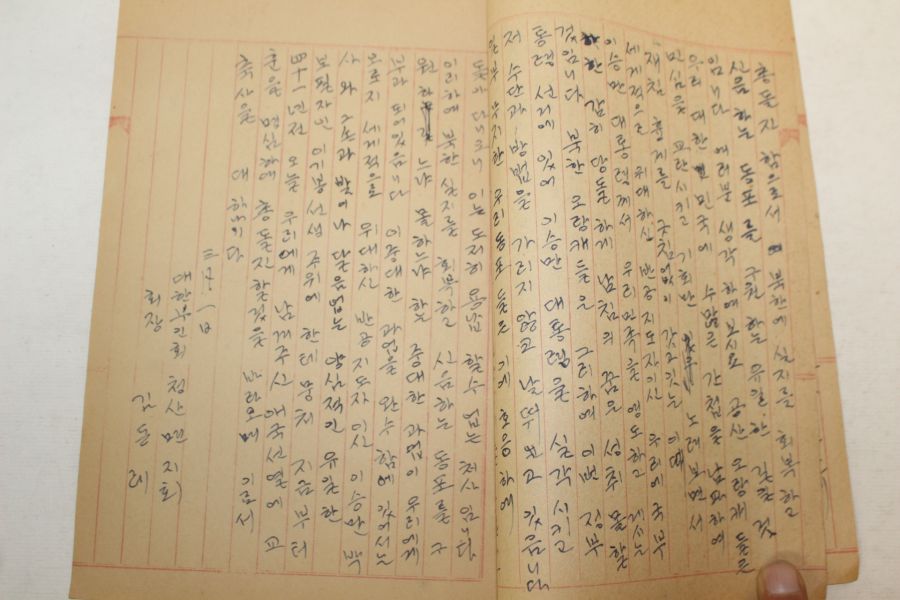 총돌진 함으로서 북한에 실지를 회복하고
신음하는 동포를 구원하는 유일한 길일 것
입니다 여러분 생각하여 보시요 공산 오랑캐들은
우리 대한민국에 수많은 간첩을 남파하여
민심을 교란시키고 기회만 노려보면서
재침 흉계를 갖고있는 이때
세계적으로 위대하신 반공지도자이신 우리에 국부
이승만 대통령께서 우리민족을 영도하고 계시는
한 감히 당돌하게 남침의 꿈은 성취 못할
것입니다 북한 오랑캐들은 그리하여 이번 정부
통령 선거에 있어 이승만 대통령을 실각시키고
저 수단과 방법을 가리지 않고 날뛰고 있읍니다
일부 무지한 우리동포들은 기에 호응하여
돌아다니니 이는 도저히 용납 할수 없는 처사입니다
이리하여 북한 실지를 회복하고 신음하는 동포를 구
원하느냐 못하느냐 하는 중대한 과업이 우리에게
부과되어있읍니다 이중대한 과업을 완수함에 있어서는
오로지 세계적으로 위대하신 반공지도자이신 이승만 박
사와 그손과 발이나 다름없는 양심적인 유일한
보필자인 이기붕 선생 주위에 한데뭉처 지금부터
四十一년전 오늘 우리에게 남겨주신 애국선열에 교
훈을 명심하여 총돌진할것을 바라오며 이로서
축사을 대하나이다
三月一日
대한부인회 청산면지회
회장 김돈례